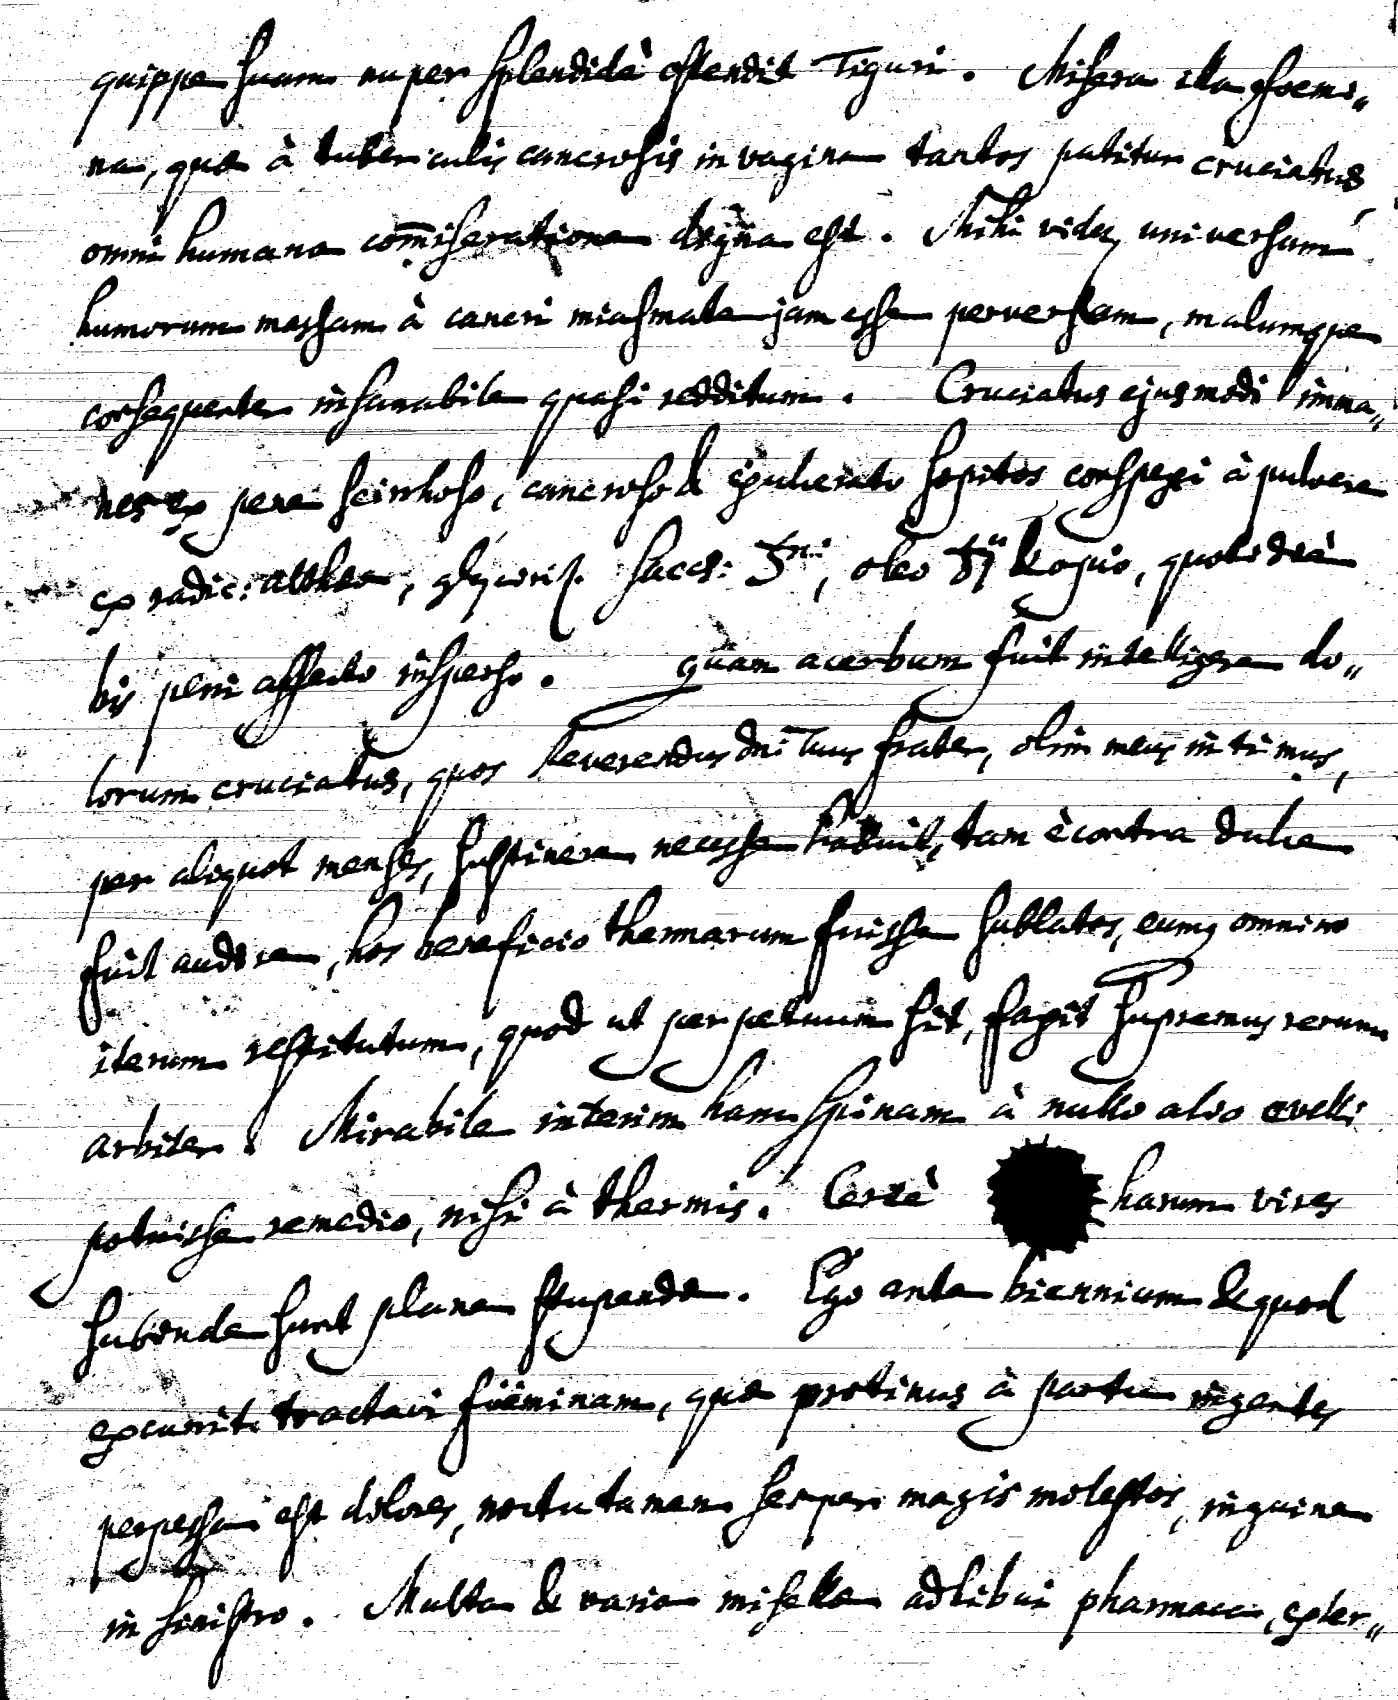 quippe suam nuper splendidè ostendit Tiguri. Misera illa foemi„
na, quæ à tuberculis cancrosis in vagina tantos patitur cruciatus,
omni humana com̅iseratione digna est. Mihi videt, universam
humorum massam à cancri miasmate jam esse perversam, malumque
consequenter insanabile quasi redditum. Cruciatus ejusmodi imma„
nes ex pene scirrhoso, cancroso & exulcerato sopitos conspexi à pulvere
ex radic: altheæ, glycyriz. sacch: , oleo & opio, quotidiè
bis peni affecto insperso. quam acerbum fuit intelligere do„
lorum cruciatus, quos Reverendus dn̅i Tuus frater, olim meus intimus,
per aliquot menses, sustinere necesse habuit, tam è contra dulce
fuit audire, hos beneficio thermarum fuisse sublatos, eumq omnino
iterum restitutum, quod ut perpetuum sit, faxit supremus rerum
arbiter. Mirabile interim hanc spinam à nullo alio evelli
potuisse remedio, nisi à thermis. Certè harum vires
subinde sunt plane stupendæ. Ego ante biennium & quod
excurrit tractavi foeminam, quæ protinus à partu ingentes
perpessa est dolores, noctu tamen semper magis molestos, inguine
in sinistro. Multa & varia misellæ adhibui pharmaca, exter„